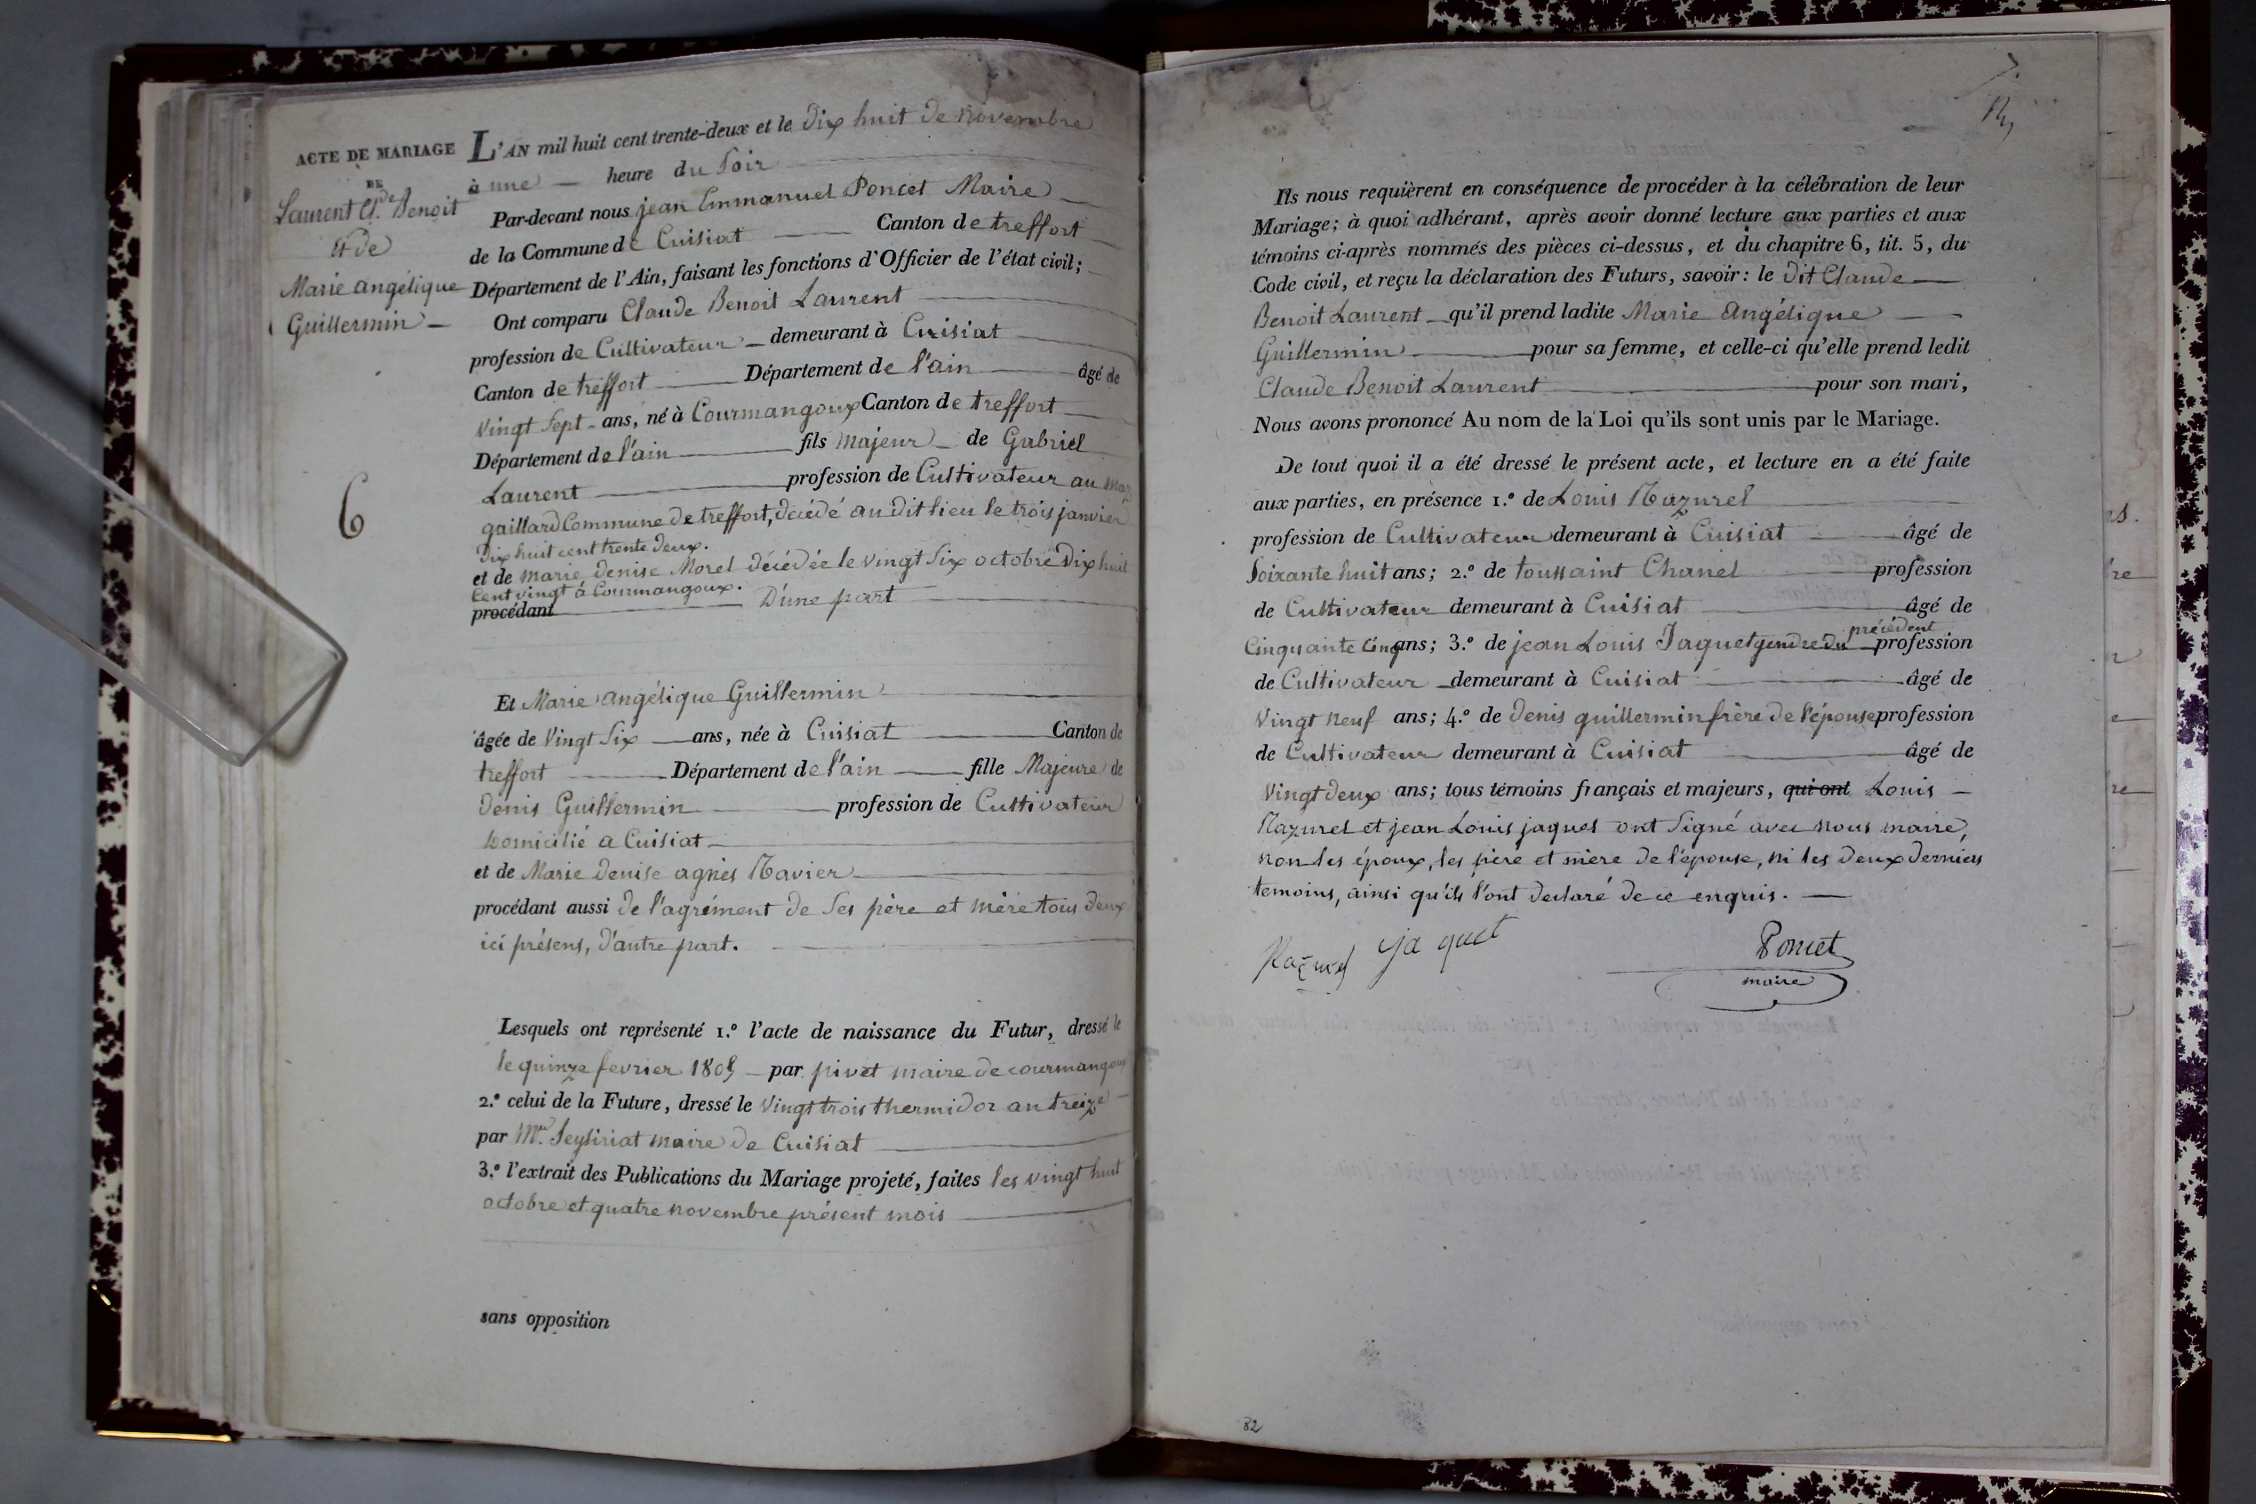 ACTE DE MARIAGE
DE
Laurent Cl.de Benoit
et de
Marie angélique
Guillermin
6
L'AN mil huit cent trente-deux et le dix huit de novembre
à une heure du soir
Par-devant nous jean Emmanuel Poncet Maire
de la Commune de Cuisiat Canton de treffort
Département de l'Ain, faisant les fonctions d'Officier de l'état civil;
Ont comparu Claude Benoit Laurent
profession de Cultivateur demeurant à Cuisiat
Canton de treffort Département de l'ain âgé de
vingt sept ans, né à Courmangoux Canton de treffort
Département de l'ain fils majeur de Gabriel
Laurent profession de Cultivateur au mas
gaillard Commune de treffort, décédé au dit lieu le trois janvier
dix huit cent trente deux.
et de marie denise Morel décédée le vingt six octobre dix huit
cent vingt à Courmangoux.
procédant D'une part
Et Marie angélique Guillermin
âgée de vingt six ans, née à Cuisiat Canton de
treffort Département de l'ain fille Majeure de
denis Guillermin profession de Cultivateur
domicilié a Cuisiat
et de Marie denise agnès Navier
procédant aussi de l'agrément de ses père et mère tous deux
ici présens, d'autre part.
Lesquels ont représenté 1.º l'acte de naissance du Futur, dressé le
le quinze fevrier 1805 par pivet maire de courmangoux
2.º celui de la Future, dressé le vingt trois thermidor an treize
par Mr. Seysiriat maire de Cuisiat
3.º l'extrait des Publications du Mariage projeté, faites les vingt huit
octobre et quatre novembre présent mois
sans opposition
Ils nous requièrent en conséquence de procéder à la célébration de leur
Mariage; à quoi adhérant, après avoir donné lecture aux parties et aux
témoins ci-après nommés des pièces ci-dessus, et du chapitre 6, tit. 5, du
Code civil, et reçu la déclaration des Futurs, savoir: le dit Claude
Benoit Laurent qu'il prend ladite Marie angélique
Guillermin pour sa femme, et celle-ci qu'elle prend ledit
Claude Benoit Laurent pour son mari,
Nous avons prononcé Au nom de la Loi qu'ils sont unis par le Mariage.
De tout quoi il a été dressé le présent acte, et lecture en a été faite
aux parties, en présence 1.º de Louis Nazurel
profession de Cultivateur demeurant à Cuisiat âgé de
soixante huit ans; 2.º de toussaint Chanel profession
de Cultivateur demeurant à Cuisiat âgé de
précédent
Cinquante cinq ans; 3.º de jean Louis Jaquet gendre du profession
de Cultivateur demeurant à Cuisiat âgé de
vingt neuf ans; 4.º de denis guillermin frère de l'épouse profession
de Cultivateur demeurant à Cuisiat âgé de
vingt deux ans; tous témoins français et majeurs, qui ont Louis
Nazurel et jean Louis jaquet ont signé avec nous maire,
non les époux, les père et mère de l'épouse, ni les deux derniers
temoins, ainsi qu'ils l'ont declaré de ce enquis.
Nazurel jaquet Poncet
maire
82